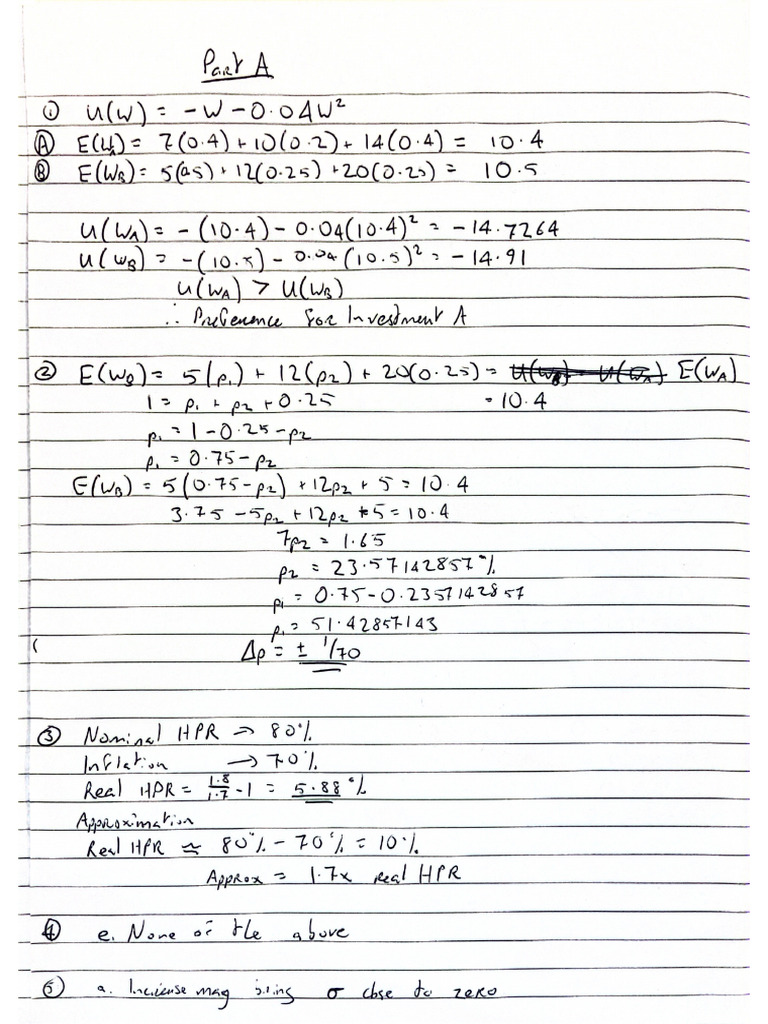 Part A
① U(W) = -W - 0.04W²
Ⓐ E(W_A) = 7(0.4) + 10(0.2) + 14(0.4) = 10.4
Ⓑ E(W_B) = 5(0.5) + 12(0.25) + 20(0.25) = 10.5
U(W_A) = -(10.4) - 0.04(10.4)² = -14.7264
U(W_B) = -(10.5) - 0.04(10.5)² = -14.91
U(W_A) > U(W_B)
∴ Preference for Investment A
② E(W_B) = 5(p₁) + 12(p₂) + 20(0.25) = E(W_A)
1 = p₁ + p₂ + 0.25 = 10.4
p₁ = 1 - 0.25 - p₂
p₁ = 0.75 - p₂
E(W_B) = 5(0.75 - p₂) + 12p₂ + 5 = 10.4
3.75 - 5p₂ + 12p₂ + 5 = 10.4
7p₂ = 1.65
p₂ = 23.57142857%
p₁ = 0.75 - 0.2357142857
p₁ = 51.42857143
Δp = ± 1/70
③ Nominal HPR → 80%
Inflation → 70%
Real HPR = 1.8/1.7 - 1 = 5.88%
Approximation
Real HPR ≈ 80% - 70% = 10%
Approx = 1.7x real HPR
④ e. None of the above
⑤ a. Increase mag σ close to zero